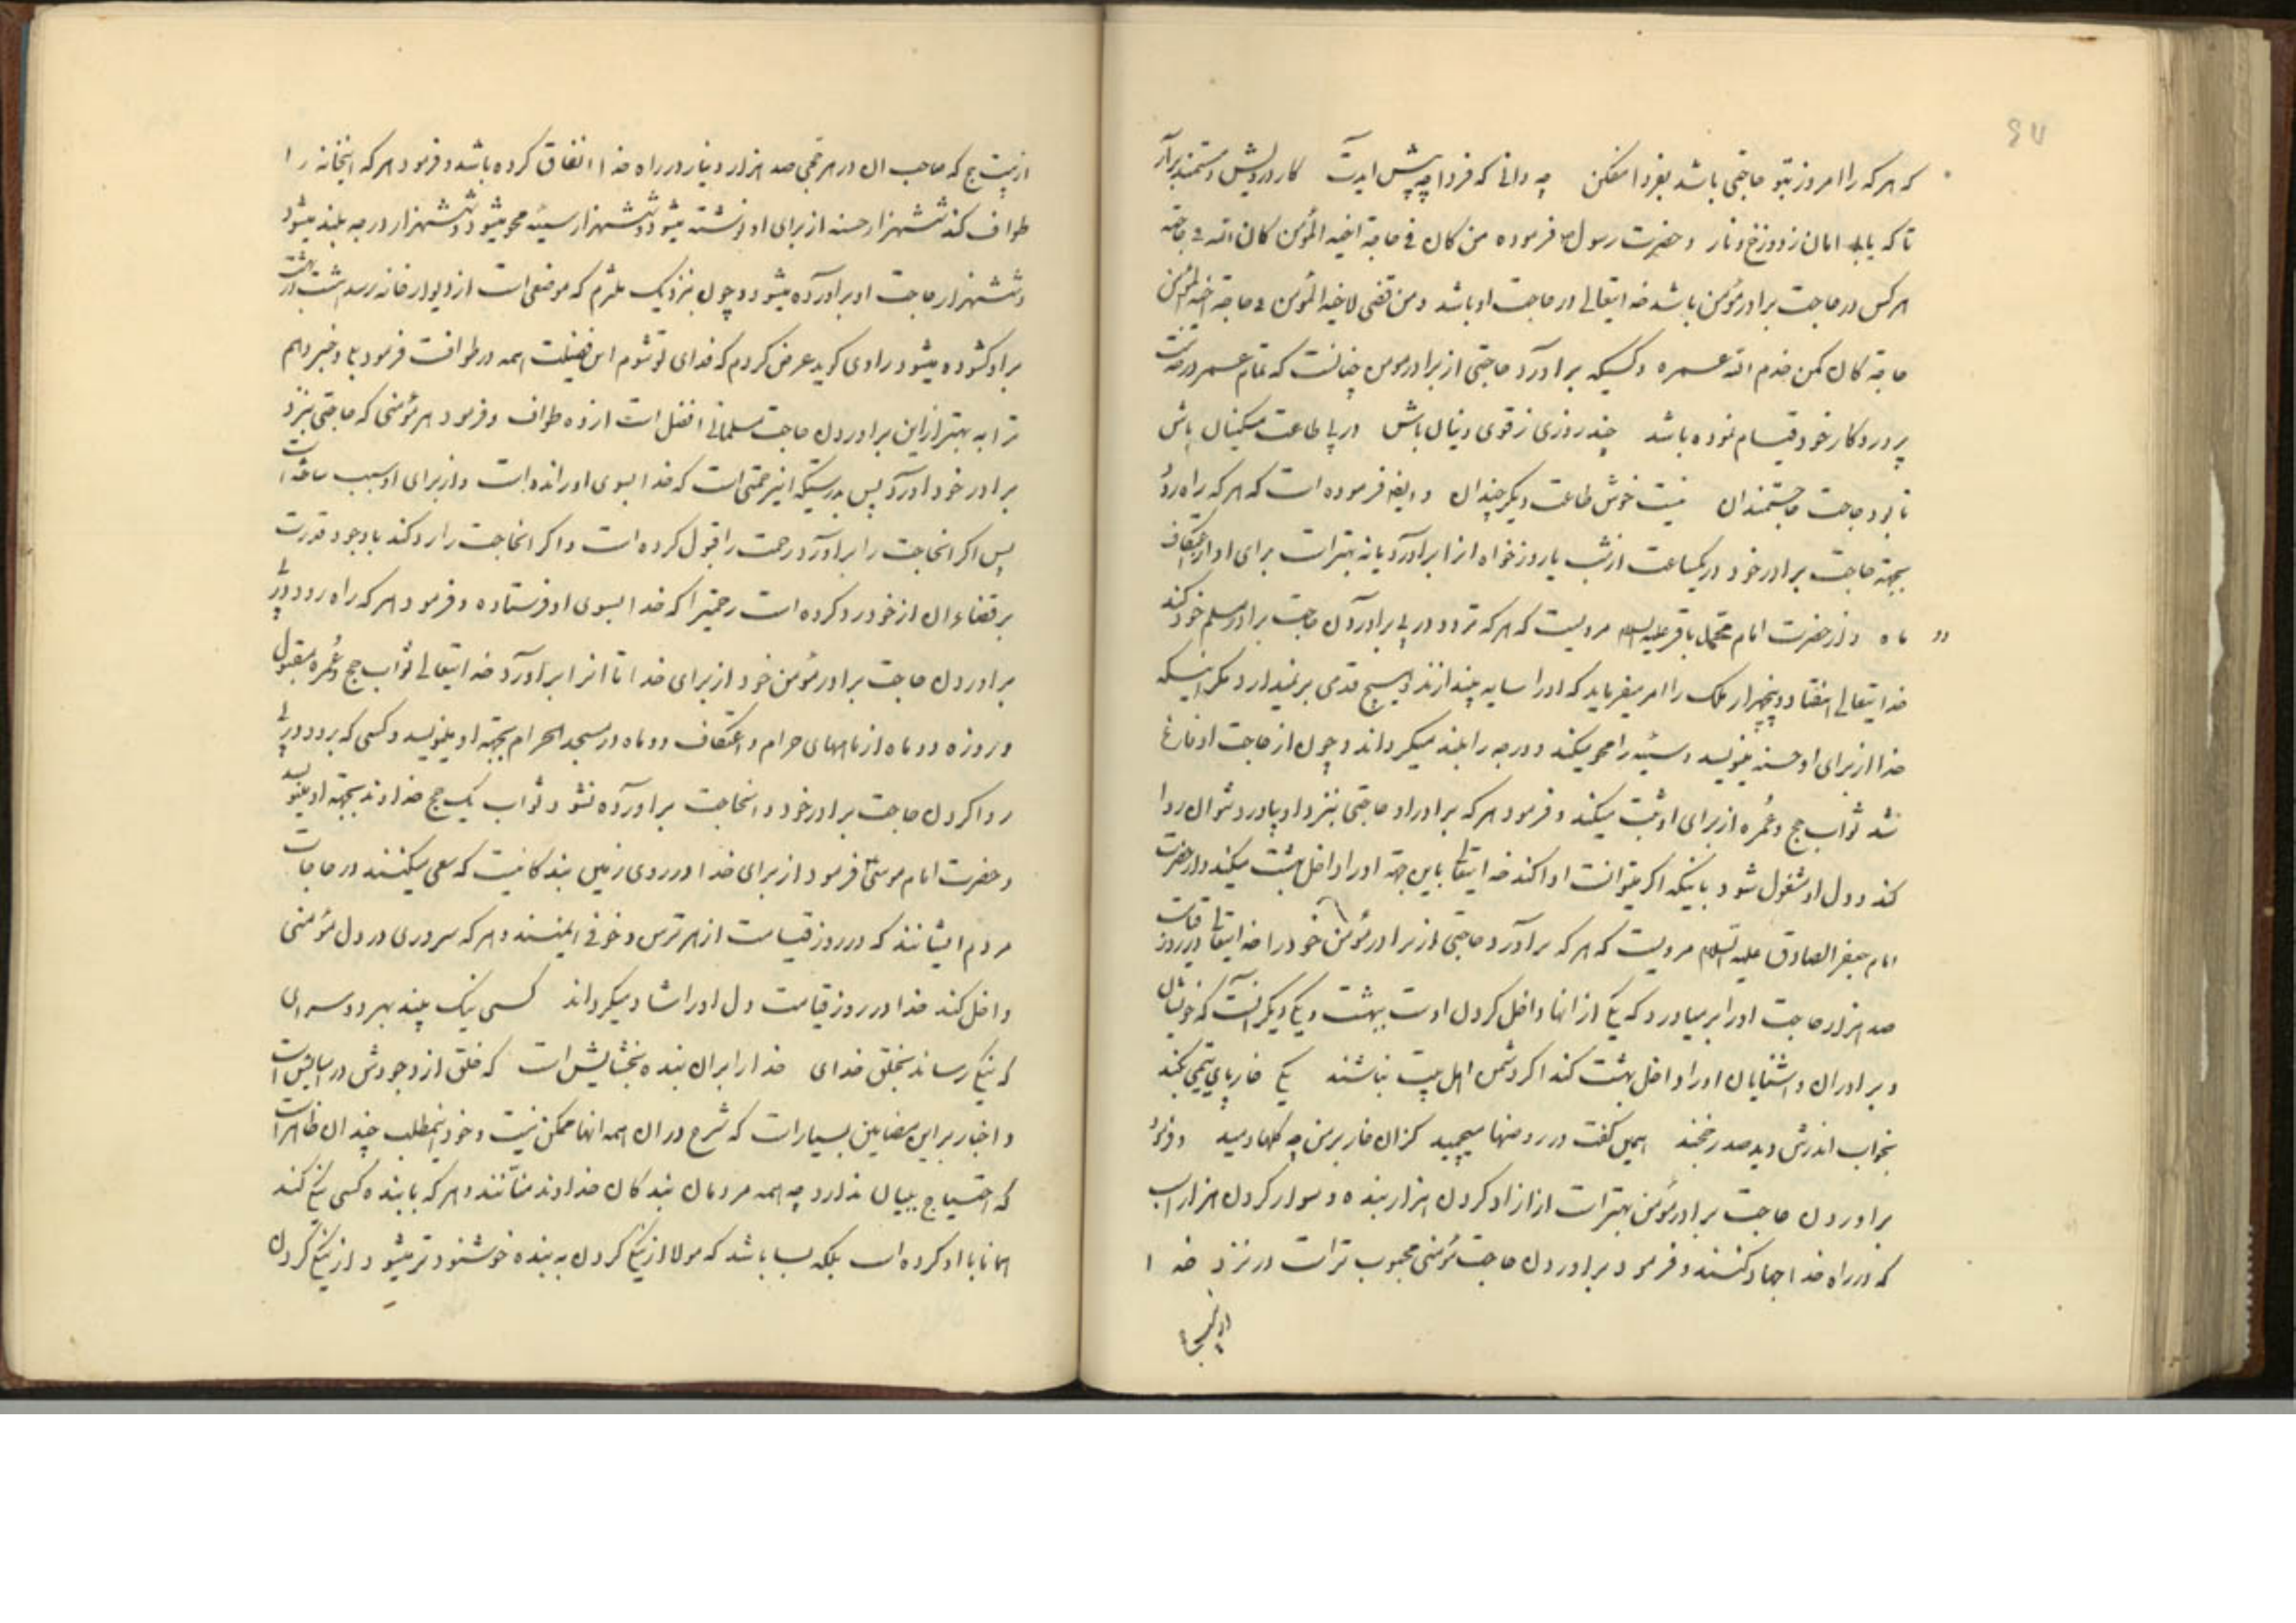 که هر که را امروز بتو حاجتی باشد بفردا مفکن چه دانی که فردا چه پیش آیدت کار درویش و مستمند برآر
تا که یابی امان ز دوزخ و نار و حضرت رسول ص فرموده من کان فی حاجة اخیه المؤمن کان الله فی حاجته
هر کس در حاجت برادر مؤمن باشد خدایتعالی در حاجت او باشد و من قضی لاخیه المؤمن فی حاجة اخیه المؤمن
حاجة کان کمن خدم الله عمره و کسیکه برآورد حاجتی از برادر مومن چنانست که تمام عمر در خدمت
پروردگار خود قیام نموده باشد چند روزی ز قوی دینان باش در پی طاعت مسکینان باش
تا بود حاجت حاجتمندان نیست خوش طاعت دیگر چندان و ایضا فرموده است که هر که براه رود
بجهة حاجت برادر خود در یکساعت از شب یا روز خواه انرا برآورد یا نه بهتر است برای او از اعتکاف
دو ماه و از حضرت امام محمد باقر علیه السلام مرویست که هر که تردد در پی برآوردن حاجت برادر مسلم خود کند
خدایتعالی هفتاد و پنجهزار ملک را امر میفرماید که او را سایه بیندازند و هیچ قدمی برنمیدارد مگر اینکه
خدا از برای او حسنه مینویسد و سیئه را محو میکند و درجه را بلند میگرداند و چون از حاجت او فارغ
شد ثواب حج و عمره از برای او ثبت میکند و فرمود هر که برادر او حاجتی بنزد او بیاورد و نتواند روا
کند و دل او مشغول شود باینکه اگر میتوانست ادا کند خدایتعالی باین جهة او را داخل بهشت میکند و از حضرت
امام جعفر الصادق علیه السلام مرویست که هر که برآورد حاجتی از برادر مؤمن خود را خدایتعالی در روز قیامت
صد هزار حاجت او را برمیاورد که یکی از انها داخل کردن اوست ببهشت و یکی دیگر انست که خویشان
و برادران و اشنایان او را داخل بهشت کند اگر دشمن اهل بیت نباشند یکی خار پای یتیمی بکند
بخواب اندرش دید صدر خجند همی گفت و در روضها میچمید کزان خار بر من چه گلها دمید و فرمود
براوردن حاجت برادر مؤمن بهتر است از ازاد کردن هزار بنده و سوار کردن هزار اسب
که در راه خدا جهاد کنند و فرمود براوردن حاجت مؤمنی محبوب تر است در نزد خدا
از بیست حج که صاحب ان در هر حجی صد هزار دینار در راه خدا انفاق کرده باشد و فرمود هر که اینخانه را
طواف کند ششهزار حسنه از برای او نوشته میشود و ششهزار سیئه محو میشود و ششهزار درجه بلند میشود
و ششهزار حاجت او برآورده میشود و چون بنزدیک ملتزم که موضعی است از دیوار خانه رسد هشت در بهشت
بر او گشوده میشود راوی گوید عرض کردم که فدای تو شوم این فضیلت همه در طوافست فرمود بلی و خبر دهم
ترا به بهتر از این براوردن حاجت مسلمانی افضل است از ده طواف و فرمود هر مؤمنی که حاجتی بنزد
برادر خود اورد پس بدرستیکه این رحمتی است که خدا بسوی او رانده است و از برای او سبب ساخته است
پس اگر انحاجت را برآورد رحمت را قبول کرده است و اگر انحاجت را رد کند با وجود قدرت
بر قضاء ان از خود رد کرده است رحمتیرا که خدا بسوی او فرستاده و فرمود هر که راه رود در پی
براوردن حاجت برادر مؤمن خود از برای خدا تا انرا برآورد خدایتعالی ثواب حج و عمره مقبول
و روزه دو ماه از ماههای حرام و اعتکاف دو ماه در مسجد الحرام بجهة او مینویسد و کسی که برود در پی
روا کردن حاجت برادر خود و انحاجت برآورده نشود ثواب یک حج خداوند بجهة او مینویسد
و حضرت امام موسی ع فرمود از برای خدا در روی زمین بندگانیست که سعی میکنند در حاجات
مردم ایشانند که در روز قیامت از هر ترس و خوفی ایمنند و هر که سروری در دل مؤمنی
داخل کند خدا در روز قیامت دل او را شاد میگرداند کسی نیک بیند بهر دو سرای
که نیکی رساند بخلق خدای خدا را بران بنده بخشایش است که خلق از وجودش در اسایش است
و اخبار بر این مضامین بسیار است که شرح دران همه انها ممکن نیست و خود اینمطلب چندان ظاهر است
که احتیاج ببیان ندارد چه همه مردمان بندگان خداوند منانند و هر که با بنده کسی نیکی کند
همانا با او کرده است بلکه بسا باشد که مولا از نیکی کردن به بنده خوشنودتر میشود از نیکی کردن